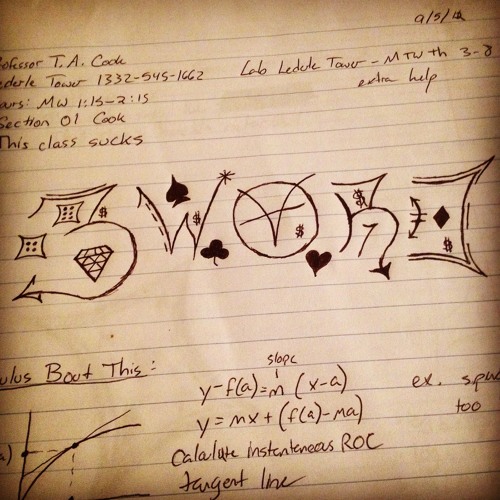 9/5/12
ofessor T. A. Cook
ederle Tower 1332-545-1662
Lab Lederle Tower - MTW th 3-8
extra help
ours: MW 1:15-2:15
Section 01 Cook
This class sucks
SWORD
ulus Bout This:
slope
y-f(a)=m (x-a)
y = mx + (f(a)-ma)
Calculate instantaneous ROC
tangent line
ex.
too
a)